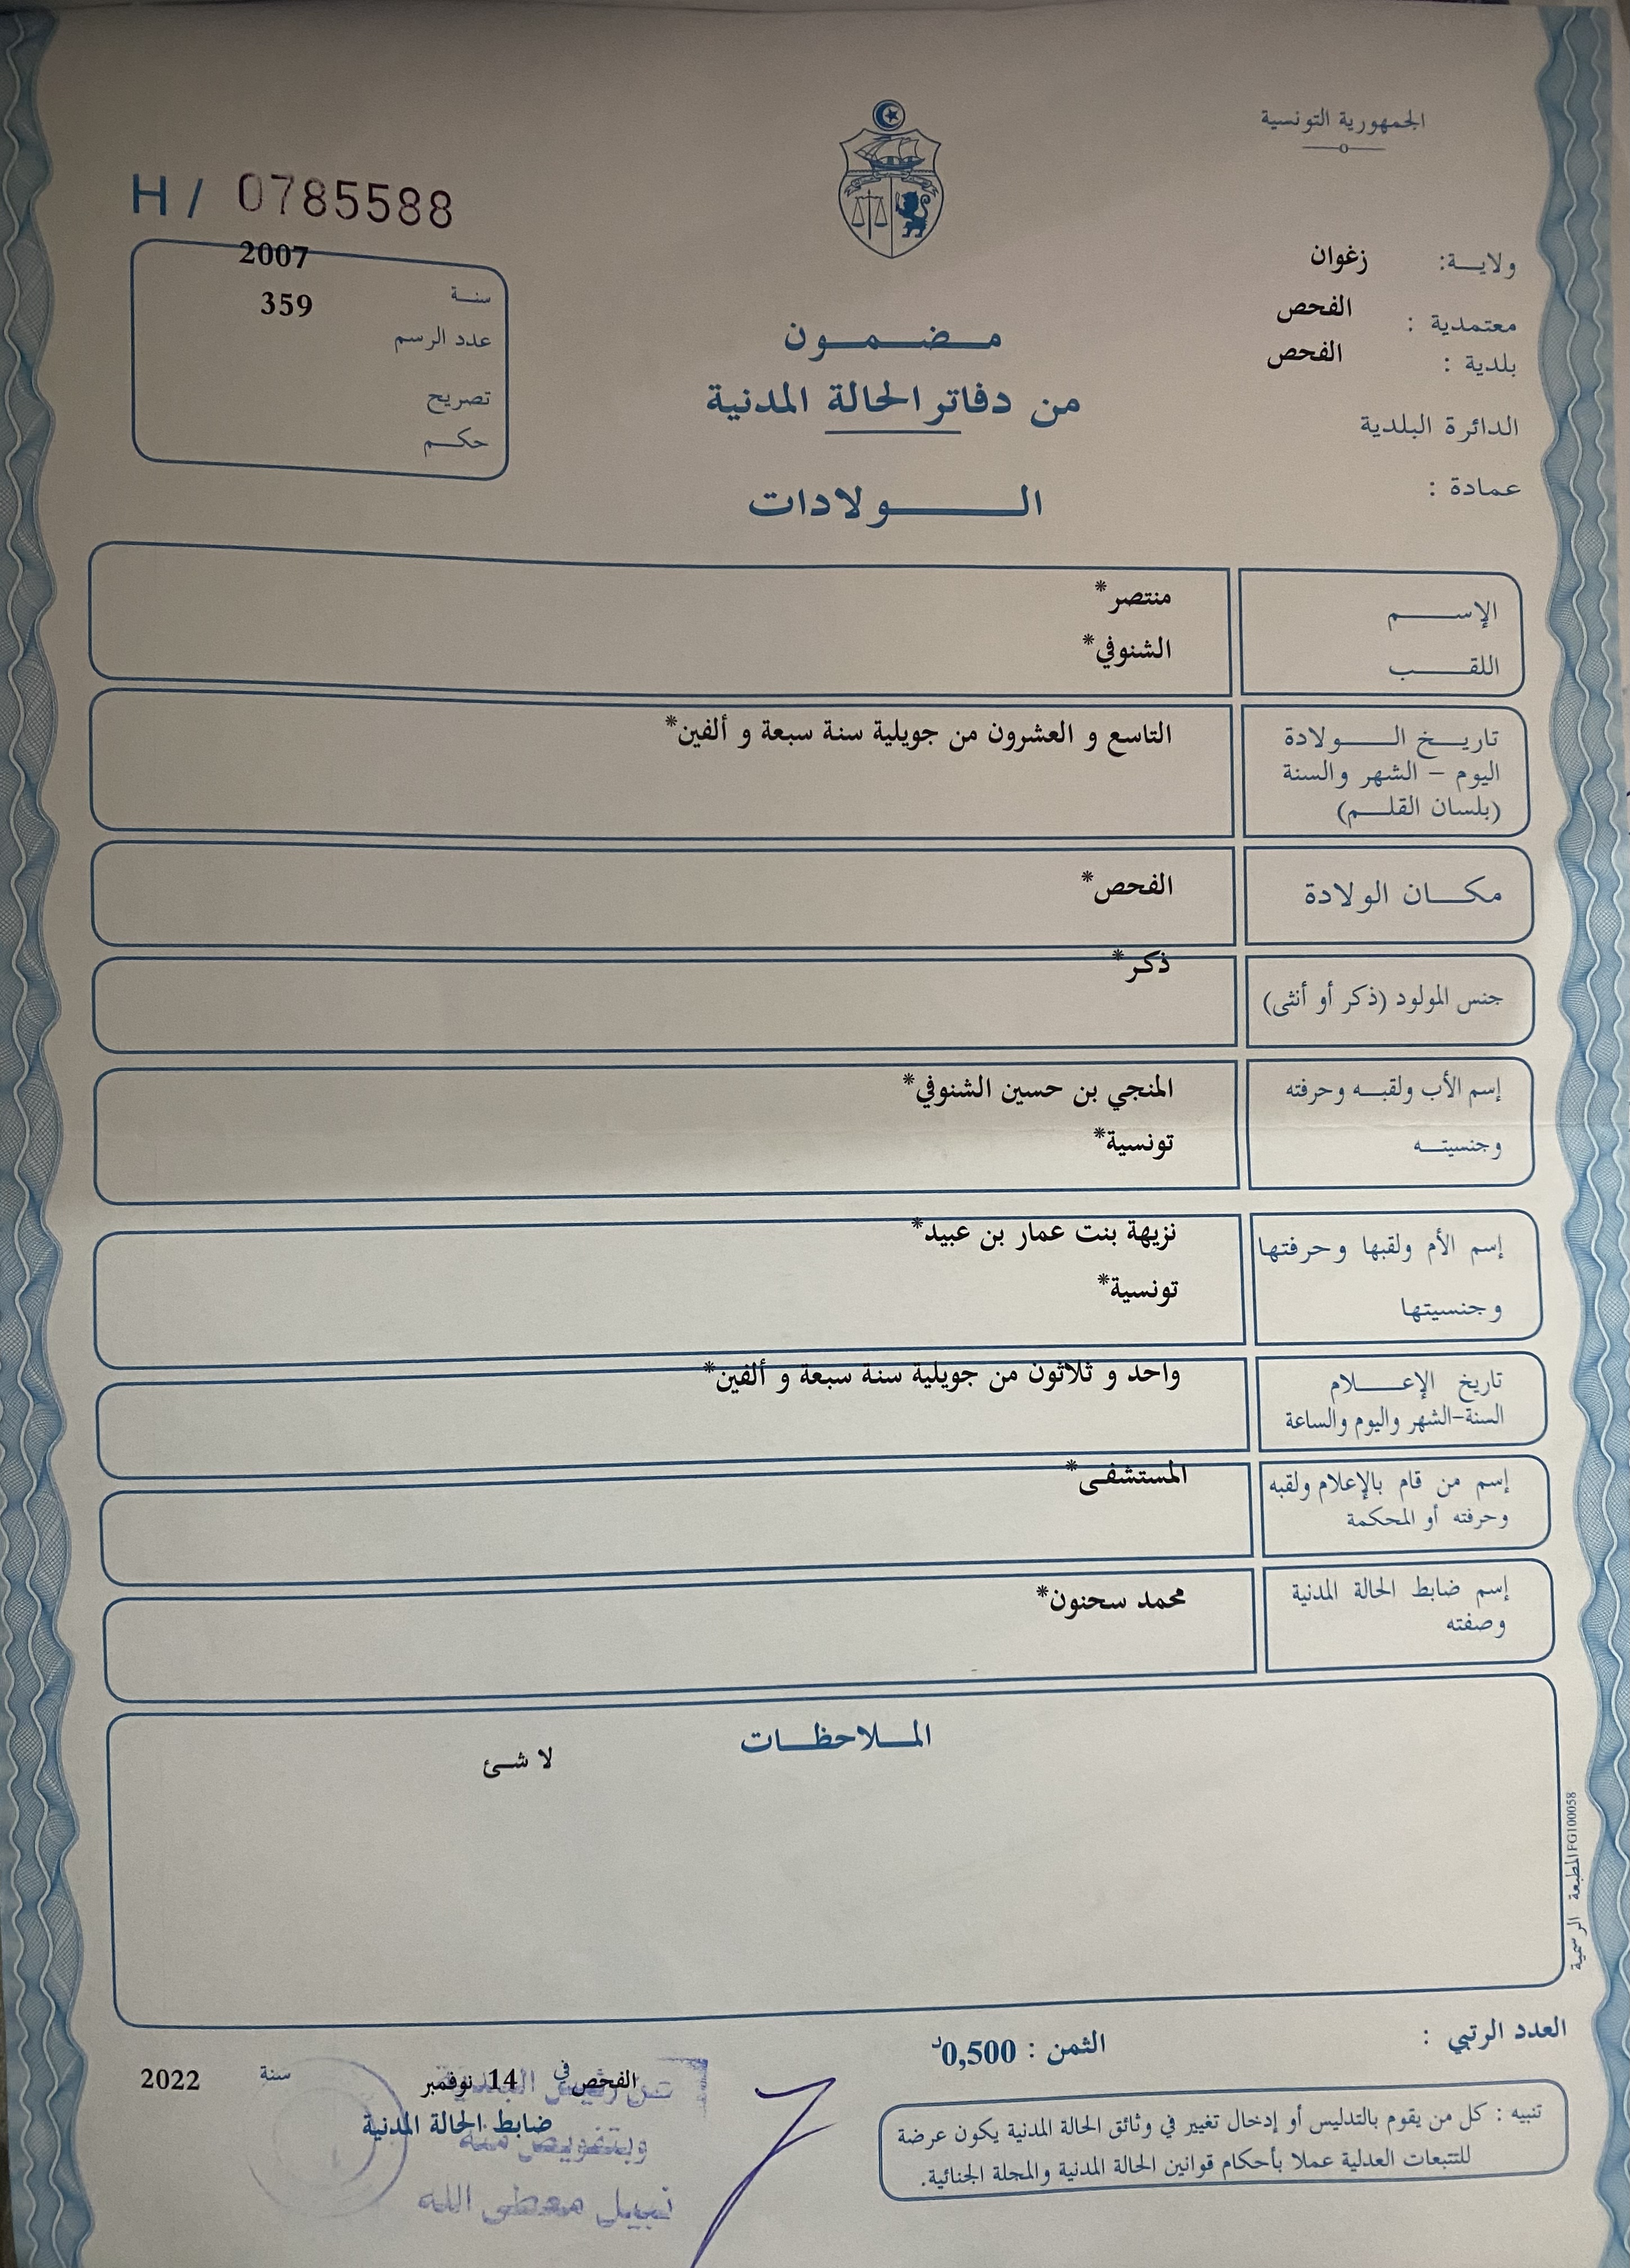 الجمهورية التونسية
ولاية: زغوان
معتمدية : الفحص
بلدية : الفحص
الدائرة البلدية
عمادة :
H / 0785588
سنة 2007
عدد الرسم 359
تصريح
حكم
مضمون
من دفاتر الحالة المدنية
الولادات
الإسم منتصر*
اللقب الشنوفي*
تاريخ الولادة
اليوم - الشهر والسنة
(بلسان القلم)
التاسع و العشرون من جويلية سنة سبعة و ألفين*
مكان الولادة الفحص*
جنس المولود (ذكر أو أنثى) ذكر*
إسم الأب ولقبه وحرفته المنجي بن حسين الشنوفي*
وجنسيته تونسية*
إسم الأم ولقبها وحرفتها نزيهة بنت عمار بن عبيد*
وجنسيتها تونسية*
تاريخ الإعلام واحد و ثلاثون من جويلية سنة سبعة و ألفين*
السنة-الشهر واليوم والساعة
إسم من قام بالإعلام ولقبه المستشفى*
وحرفته أو المحكمة
إسم ضابط الحالة المدنية محمد سحنون*
وصفته
الملاحظات
لا شئ
المطبعة الرسمية FG100058
العدد الرتبي :
الثمن : 0,500د
تنبيه : كل من يقوم بالتدليس أو إدخال تغيير في وثائق الحالة المدنية يكون عرضة
للتتبعات العدلية عملا بأحكام قوانين الحالة المدنية والمجلة الجنائية.
الفحص في 14 نوفمبر سنة 2022
ضابط الحالة المدنية
عن رئيس البلدية
وبتفويض منه
نبيل معطى الله